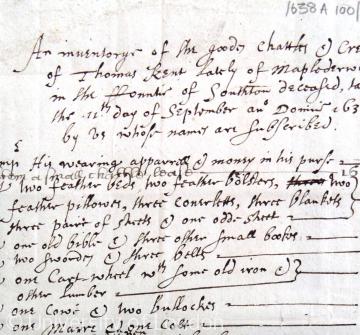 1638 A 100/
An inventorye of the goods Chattles & Cre
of Thomas Kent lately of Maplederw
in the Countie of Southton deceased, ta
the 11th day of September ano Domini 163
by us whose names are subscribed.
His wearing apparrell & money in his purse
two feather beds two feather bolsters, two
feather pillowes, three Coverletts, three blanketts
three paire of sheets & one odde sheet
one old bible & three other small bookes
two swordes & three bells
one Cart wheel wth some old iron &
other lumber
one Cowe & two Bullockes
one Mare & one Colt